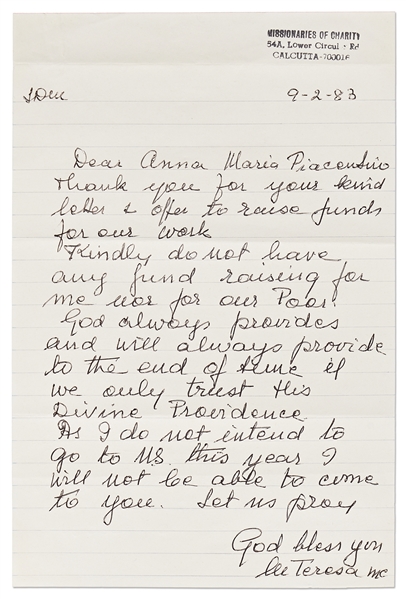 MISSIONARIES OF CHARITY
54A, Lower Circul r Rd
CALCUTTA-700016
LDM
9-2-83
Dear Anna Maria Piacentino
Thank you for your kind
letter & offer to raise funds
for our work
Kindly do not have
any fund raising for
me nor for our Poor.
God always provides
and will always provide
to the end of time if
we only trust His
Divine Providence.
As I do not intend to
go to U.S. this year I
will not be able to come
to you. Let us pray
God bless you
M Teresa mc